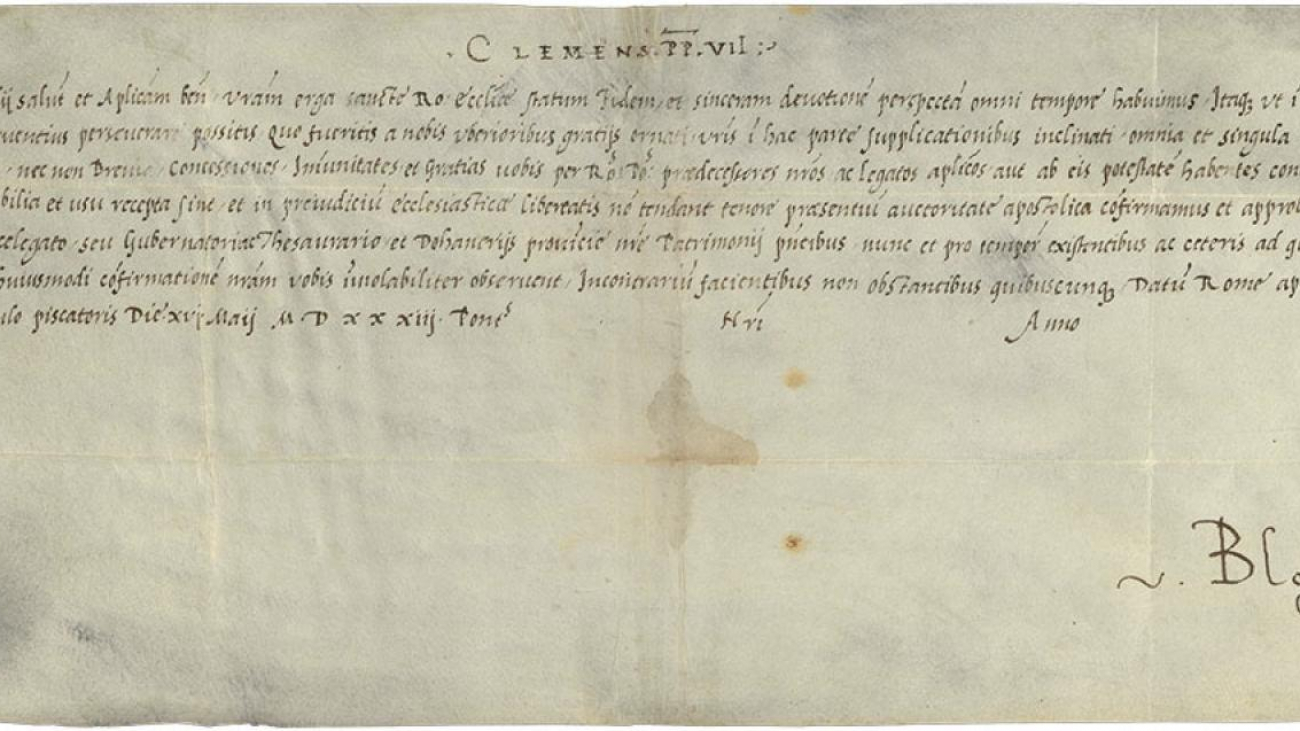 . CLEMENS. PP. VII :~
salutẽ et Aplicãm beñ. vrãm erga sancte Ro. ecclie statum Fidem, et sinceram devotionẽ perspectã omni tempore habuimus, Itaq; vt
perseverare possitis, Quo fueritis a nobis vberioribus gratijs ornati, vr̃is ĩ hac parte supplicationibus inclinati, omnia et singula
, nec non Brevia, Concessiones, Imũnitates, et Gratias vobis per Ro. Po. prædecessores nr̃os ac legatos aplicos, aut ab eis potestatẽ habentes
et usu recepta sint, et in preiudiciũ ecclesiasticæ libertatis nõ tendant tenore præsentiũ auctoritate apostolica cõfirmamus et
seu Gubernatori ac Thesaurario, et Dohanerijs provĩcie nr̃e Patrimonij pñtibus, nunc et pro tempore existentibus ac ceteris ad
cõfirmationẽ nrãm vobis ĩviolabiliter observent, Incontrariũ facientibus non obstantibus quibuscunq; Datũ Rome
piscatoris Die xvj Maij M D x x x iij. Pont^s Nr̃i Anno
~. Bl